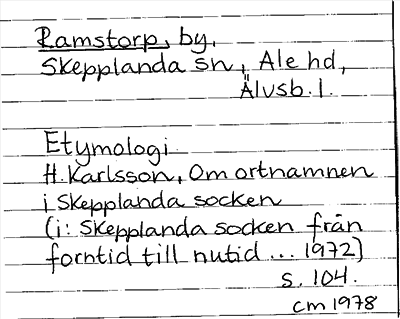 Ramstorp, by,
Skepplanda sn, Ale hd,
Älvsb. l.
Etymologi
H. Karlsson, Om ortnamnen
i Skepplanda socken
(i: Skepplanda socken från
forntid till nutid ... 1972)
s. 104.
cm 1978